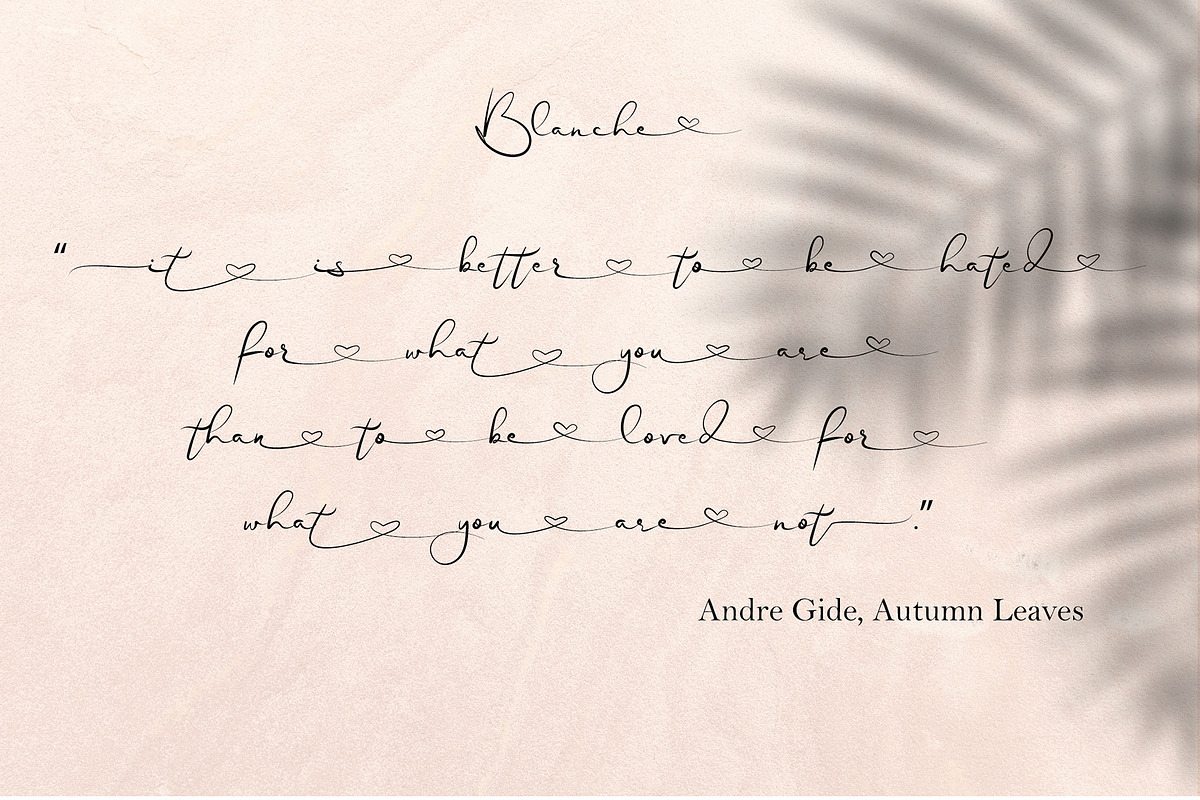 Blanche
"it is better to be hated
for what you are
than to be loved for
what you are not."
Andre Gide, Autumn Leaves